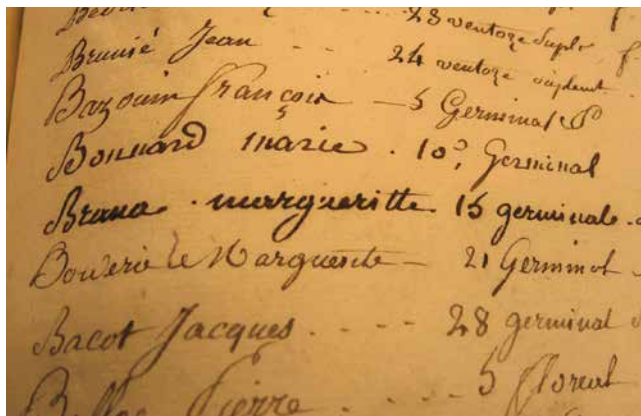 23 ventoze
Brunié Jean - - 24 ventoze
Bazouin françois — 5 Germinal
Bonnard marie . 10, Germinal
Brana . margueritte 15 germinale .
Marguerite — 21 Germinal
Bacot Jacques . - - - 28 germinal
Pierre - - - . 5 floreal